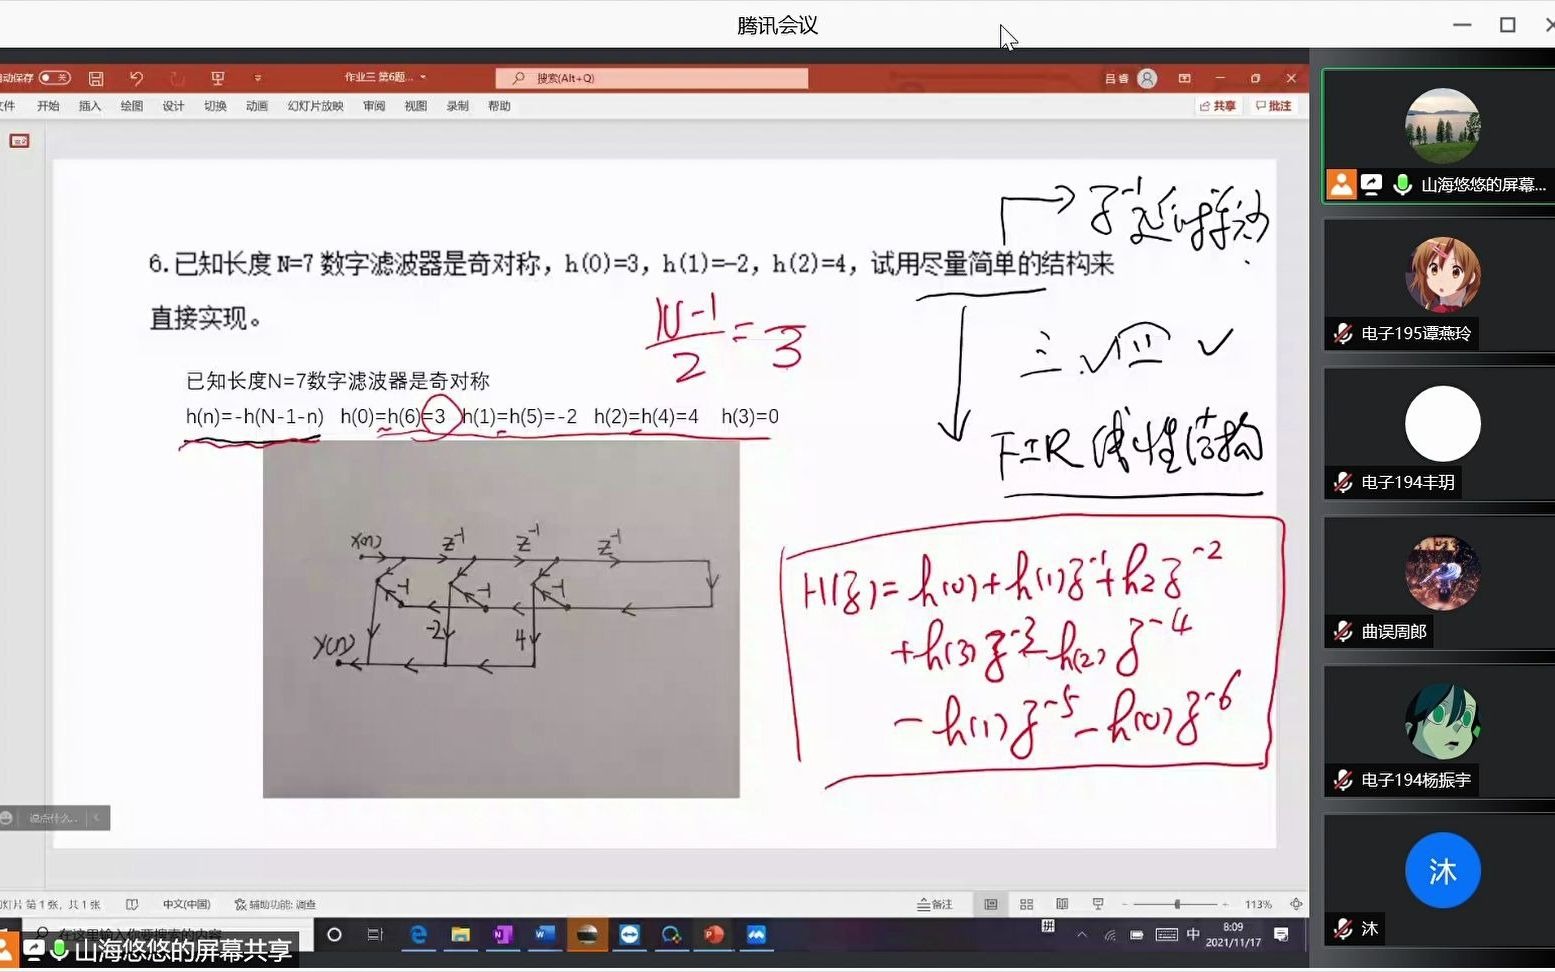 腾讯会议
自动保存 关
作业三 第6题...
搜索(Alt+Q)
吕睿
文件 开始 插入 绘图 设计 切换 动画 幻灯片放映 审阅 视图 录制 帮助
共享 批注
z^-1 延时
6.已知长度N=7数字滤波器是奇对称，h(0)=3，h(1)=-2，h(2)=4，试用尽量简单的结构来
直接实现。
N-1/2 = 3
三 四
已知长度N=7数字滤波器是奇对称
h(n)=-h(N-1-n) h(0)=h(6)=3 h(1)=h(5)=-2 h(2)=h(4)=4 h(3)=0
FIR 线性结构
x(n) z^-1 z^-1 z^-1
-1 -1 -1
-2 4
y(n)
H(z)=h(0)+h(1)z^-1+h2z^-2
+h(3)z^-3-h(2)z^-4
-h(1)z^-5-h(0)z^-6
说点什么...
幻灯片 第1张，共1张 中文(中国) 辅助功能: 调查
备注 113%
在这里输入你要搜索的内容
山海悠悠的屏幕共享
拼
中
8:09
2021/11/17
山海悠悠的屏幕...
电子195谭燕玲
电子194丰玥
曲误周郎
电子194杨振宇
沐
沐